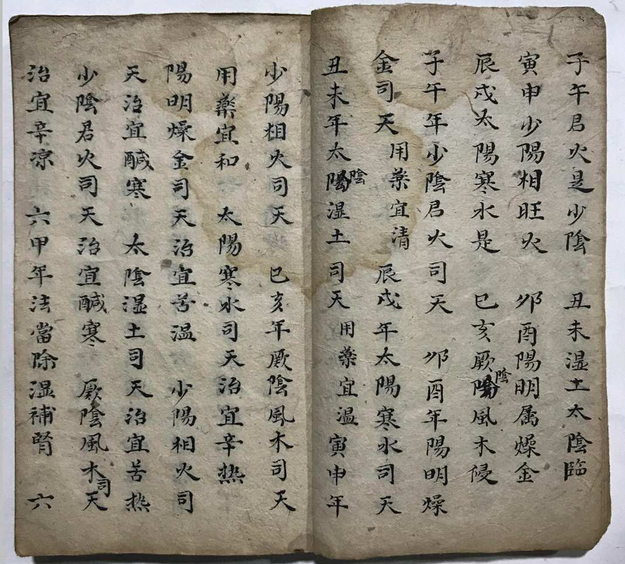 子午君火是少陰　丑未湿土太陰臨
寅申少陽相旺火　卯酉陽明属燥金
辰戍太陽寒水是　巳亥厥陽陰風木侵
子午年少陰君火司天　卯酉年陽明燥
金司天　用藥宜清　辰戍年太陽寒水司天
丑未年太陽陰湿土司天　用藥宜温　寅申年
少陽相火司天　巳亥年厥陰風木司天
用藥宜和　太陽寒水司天治宜辛热
陽明燥金司天治宜苦温　少陽相火司
天治宜鹹寒　太陰湿土司天治宜苦热
少陰君火司天治宜鹹寒　厥陰風木司天
治宜辛凉　六甲年法當除湿補腎　六